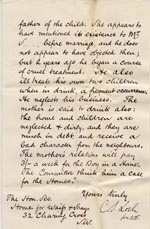 father of the child. She appears to
have mentioned its existence to Mr
before marriage, and he does
not appear to have objected then;
but 2 years ago he began a course
of cruel treatment. He also
ill treats his own two children
when in drink, a frequent occurrence.
He neglects his business. The
mother is said to drink also:
the home and children are
neglected & dirty, and they are
much in debt and receive a
bad character from the neighbours.
The mother's relations will pay
a week for the Boy in a Home.
The Committee think him a case
for the Homes.
Yours truly
The Hon. Sec
Homes for Waifs & Strays
32 Charing Cross
S.W.